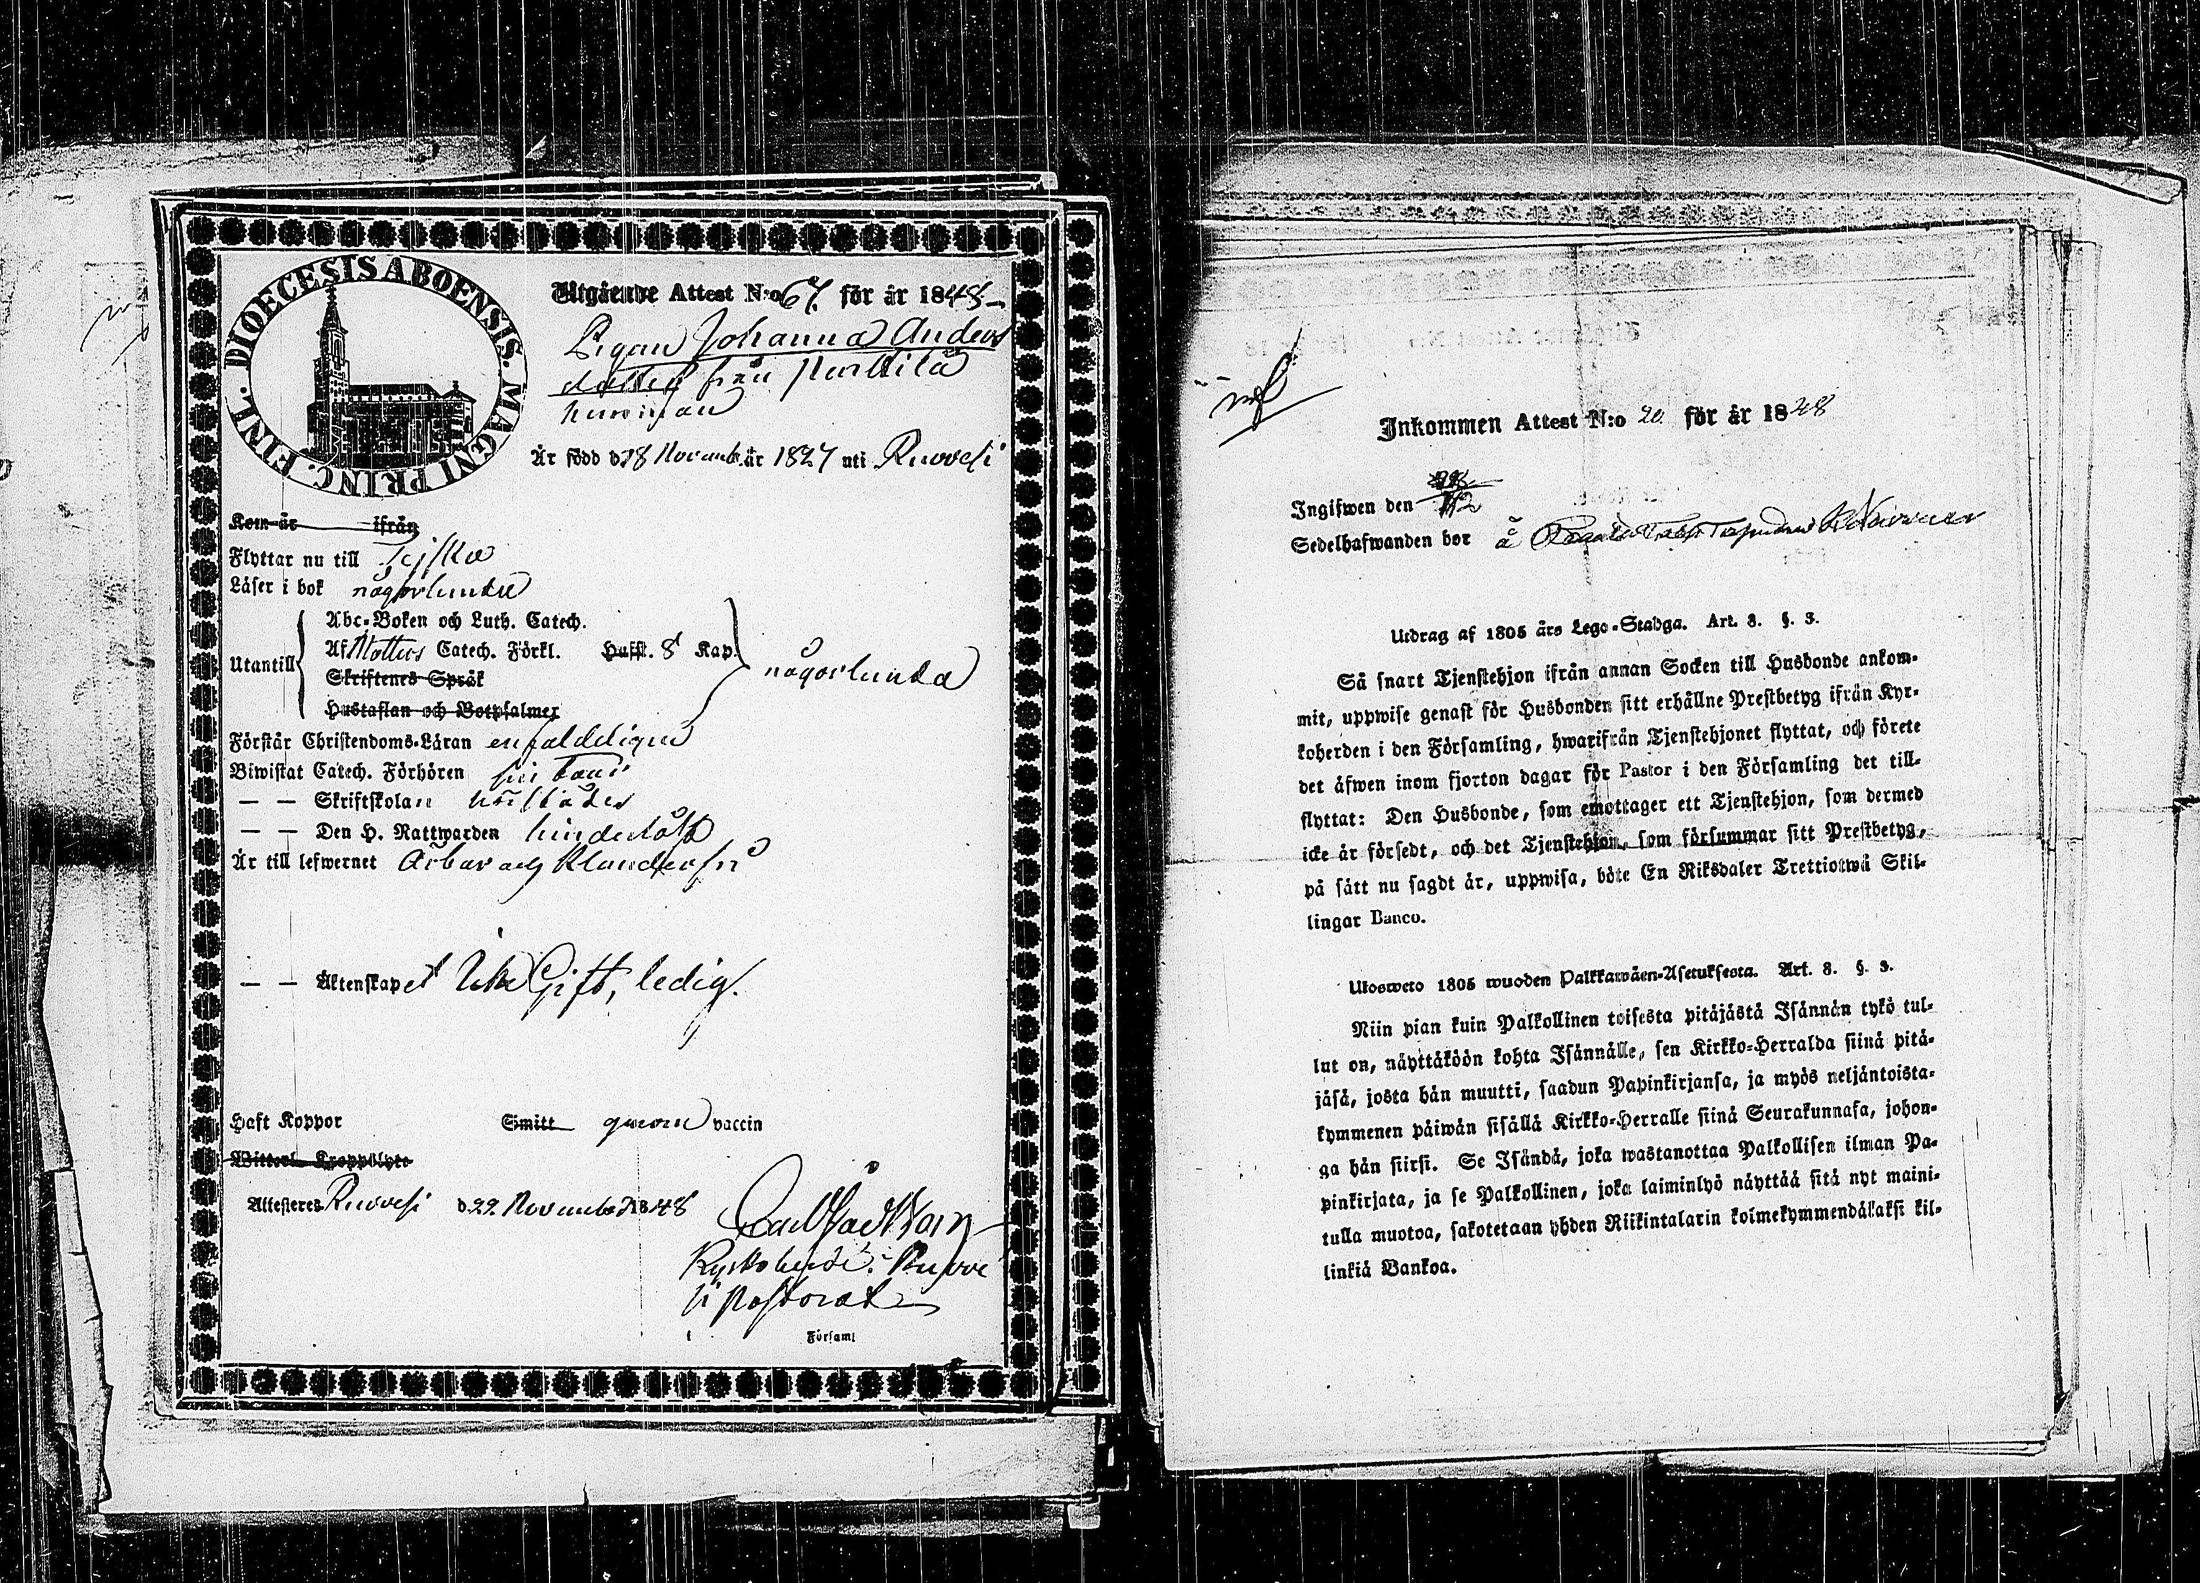 DIOECESIS ABOENSIS. MAGNI PRINC. FINL.
Utgående Attest N:o 67. för år 1848
Pigan Johanna Anders
dotter från Parkkila
hemman
Är född d. 18 Novemb. år 1827 uti Ruovesi
Kom år ifrån
Flyttar nu till Teisko
Läser i bok någorlunda
Abc-Boken och Luth. Catech.
Utantill
Af Möllers Catech. Förkl. Husst. 8 Kap.
någorlunda
Skriftenes Språk
Hustaflan och Botpsalmer
Förstår Christendoms-Läran enfaldeligen
Biwistat Catech. Förhören
— — Skriftskolan
— — Den H. Nattwarden
Är till lefwernet Ärbar och Klanderfri
— — Äktenskapet Icke Gift, ledig.
Haft Koppor Smitt genom vaccin
Witterl. Kroppslyte
Attesteres Ruovesi d. 22 November 1848
Kyrkoherde i Ruove
si Pastorat
i Församl
Inkommen Attest N:o 20. för år 1848
Ingifwen den
Sedelhafwanden bor å
Utdrag af 1805 års Lego-Stadga. Art. 8. §. 3.
Så snart Tjenstehjon ifrån annan Socken till Husbonde ankom-
mit, uppwise genast för Husbonden sitt erhållne Prestbetyg ifrån Kyr-
koherden i den Församling, hwarifrån Tjenstehjonet flyttat, och förete
det äfwen inom fjorton dagar för Pastor i den Församling det till-
flyttat: Den Husbonde, som emottager ett Tjenstehjon, som dermed
icke är försedt, och det Tjenstehjon, som försummar sitt Prestbetyg,
på sätt nu sagdt är, uppwisa, böte En Riksdaler Trettiotwå Skil-
lingar Banco.
Ulosweto 1805 wuoden Palkkawäen-Asetuksesta. Art. 8. §. 3.
Niin pian kuin Palkollinen toisesta pitäjästä Isännän tykö tul-
lut on, näyttäköön kohta Isännälle, sen Kirkko-Herralda siinä pitä-
jäsä, josta hän muutti, saadun Papinkirjansa, ja myös neljäntoista-
kymmenen päiwän sisällä Kirkko-Herralle siinä Seurakunnasa, johon-
ga hän siirsi. Se Isändä, joka wastanottaa Palkollisen ilman Pa-
pinkirjata, ja se Palkollinen, joka laiminlyö näyttää sitä nyt maini-
tulla muotoa, sakotetaan yhden Riikintalarin kolmekymmendäkaksi kil-
linkiä Bankoa.